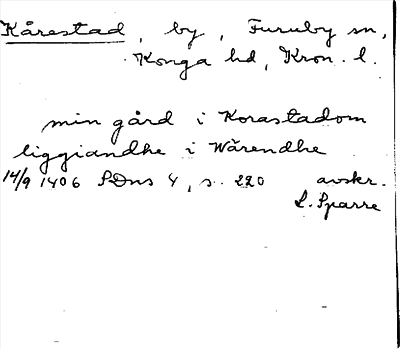 Kårestad, by, Furuby sn,
Konga hd, Kron. l.
min gård i Korastadom
liggiandhe i Wärendhe
14/9 1406 SDns 4, s. 220 avskr.
L. Sparre